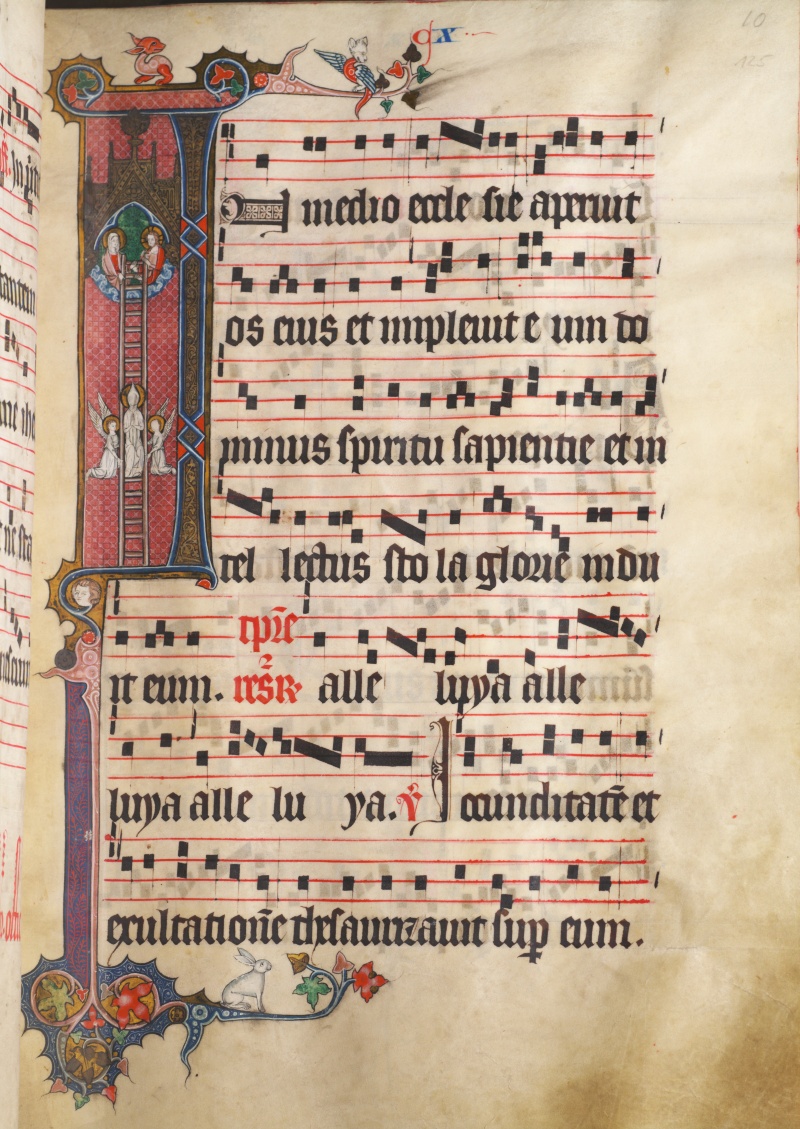 gx
10
125
In medio eccle sie aperuit
os eius et impleuit e um do
minus spiritu sapientie et in
tel lectus sto la glorie indu
it eum. tp̄re resR alle luya alle
luya alle lu ya. V Iocunditatē et
exultationē thesaurizauit sup eum.